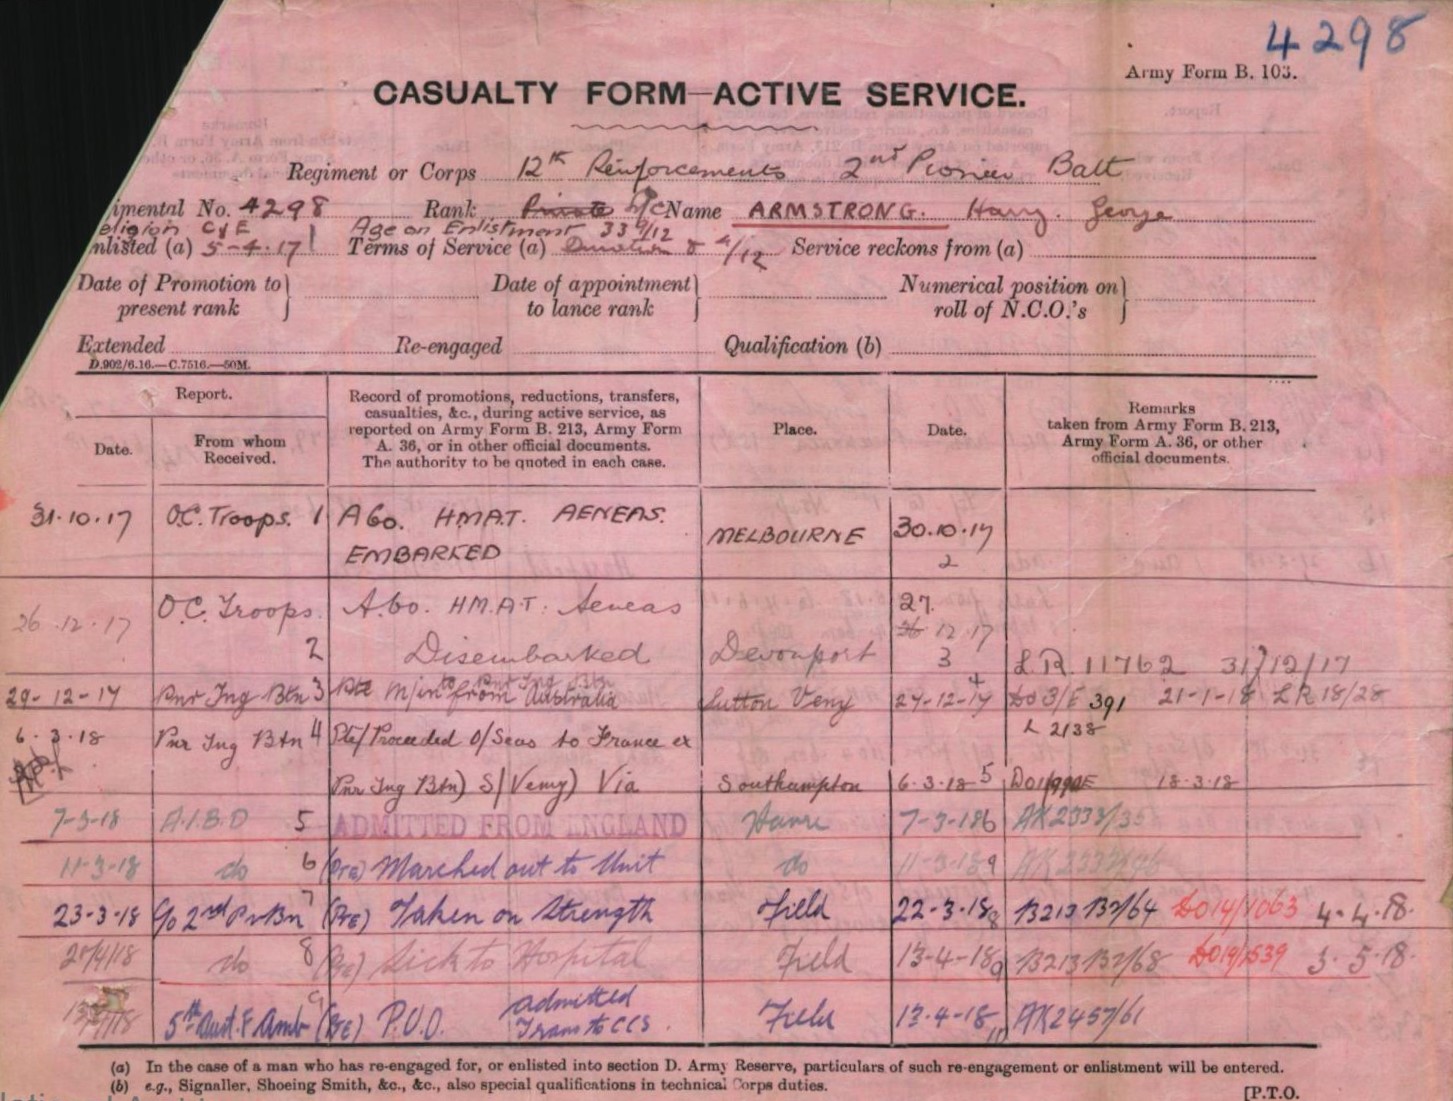 4298
Army Form B. 103.
CASUALTY FORM—ACTIVE SERVICE.
Regiment or Corps 12th Reinforcements 2nd Pioneer Batt
imental No. 4298 Rank Private Name ARMSTRONG. Harry. George
eligion C of E Age on Enlistment 33 9/12
nlisted (a) 5-4-17 Terms of Service (a) Duration & 4/12 Service reckons from (a)
Date of Promotion to present rank } Date of appointment to lance rank } Numerical position on roll of N.C.O.'s }
Extended Re-engaged Qualification (b)
D.902/6.16.—C.7516.—50M.
Report.
Date.
From whom Received.
Record of promotions, reductions, transfers, casualties, &c., during active service, as reported on Army Form B. 213, Army Form A. 36, or in other official documents. The authority to be quoted in each case.
Place.
Date.
Remarks taken from Army Form B. 213, Army Form A. 36, or other official documents.
31.10.17 O.C. Troops. 1 A60. HMAT. AENEAS. EMBARKED MELBOURNE 30.10.17 2
26.12.17 O.C. Troops. 2 A60. H.M.A.T. Aeneas Disembarked Devonport 27. 26 12.17 3 L.R. 11762 31/12/17
29-12-17 Pnr Tng Btn 3 Pte M/in to Pnr Tng Btn from Australia Sutton Veny 27-12-17 4 DO 3/E 391 21-1-18 LR 18/28
6.3.18 Pnr Tng Btn 4 Pte/Proceeded O/Seas to France ex L 2138
Pnr Tng Btn) S/Veny) Via Southampton 6-3-18 5 18-3-18
7-3-18 A.I.B.D 5 ADMITTED FROM ENGLAND Havre 7-3-18 6 AK2333/35
11-3-18 do 6 (Pte) Marched out to Unit do 11-3-18
23-3-18 C/o 2nd Pnr Bn 7 (Pte) Taken on Strength Field 22-3-18 B213 B137/64 DO14/1063 4-4-18.
do 8 (Pte) Sick to Hospital Field 13-4-18 B213 B137/68 DO19/1539 3-5-18.
5th Aust. F. Amb 9 (Pte) P.U.O. admitted Trans to CCS. Field 13-4-18 AK2457/61
(a) In the case of a man who has re-engaged for, or enlisted into section D. Army Reserve, particulars of such re-engagement or enlistment will be entered.
(b) e.g., Signaller, Shoeing Smith, &c., &c., also special qualifications in technical Corps duties.
[P.T.O.